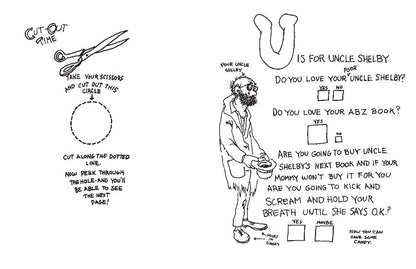 CUT OUT
TIME
TAKE YOUR SCISSORS
AND CUT OUT THIS
CIRCLE
CUT ALONG THE DOTTED
LINE.
NOW PEEK THROUGH
THE HOLE-AND YOU'LL
BE ABLE TO SEE
THE NEXT
PAGE!
U IS FOR UNCLE SHELBY
POOR UNCLE
SHELBY
POOR
DO YOU LOVE YOUR UNCLE SHELBY?
YES NO
DO YOU LOVE YOUR ABZ BOOK?
YES
NO
ARE YOU GOING TO BUY UNCLE
SHELBY'S NEXT BOOK AND IF YOUR
MOMMY WON'T BUY IT FOR YOU
ARE YOU GOING TO KICK AND
SCREAM AND HOLD YOUR
BREATH UNTIL SHE SAYS O.K.?
YES MAYBE
NOW YOU CAN
HAVE SOME
CANDY.
HOLES IN
SHOES